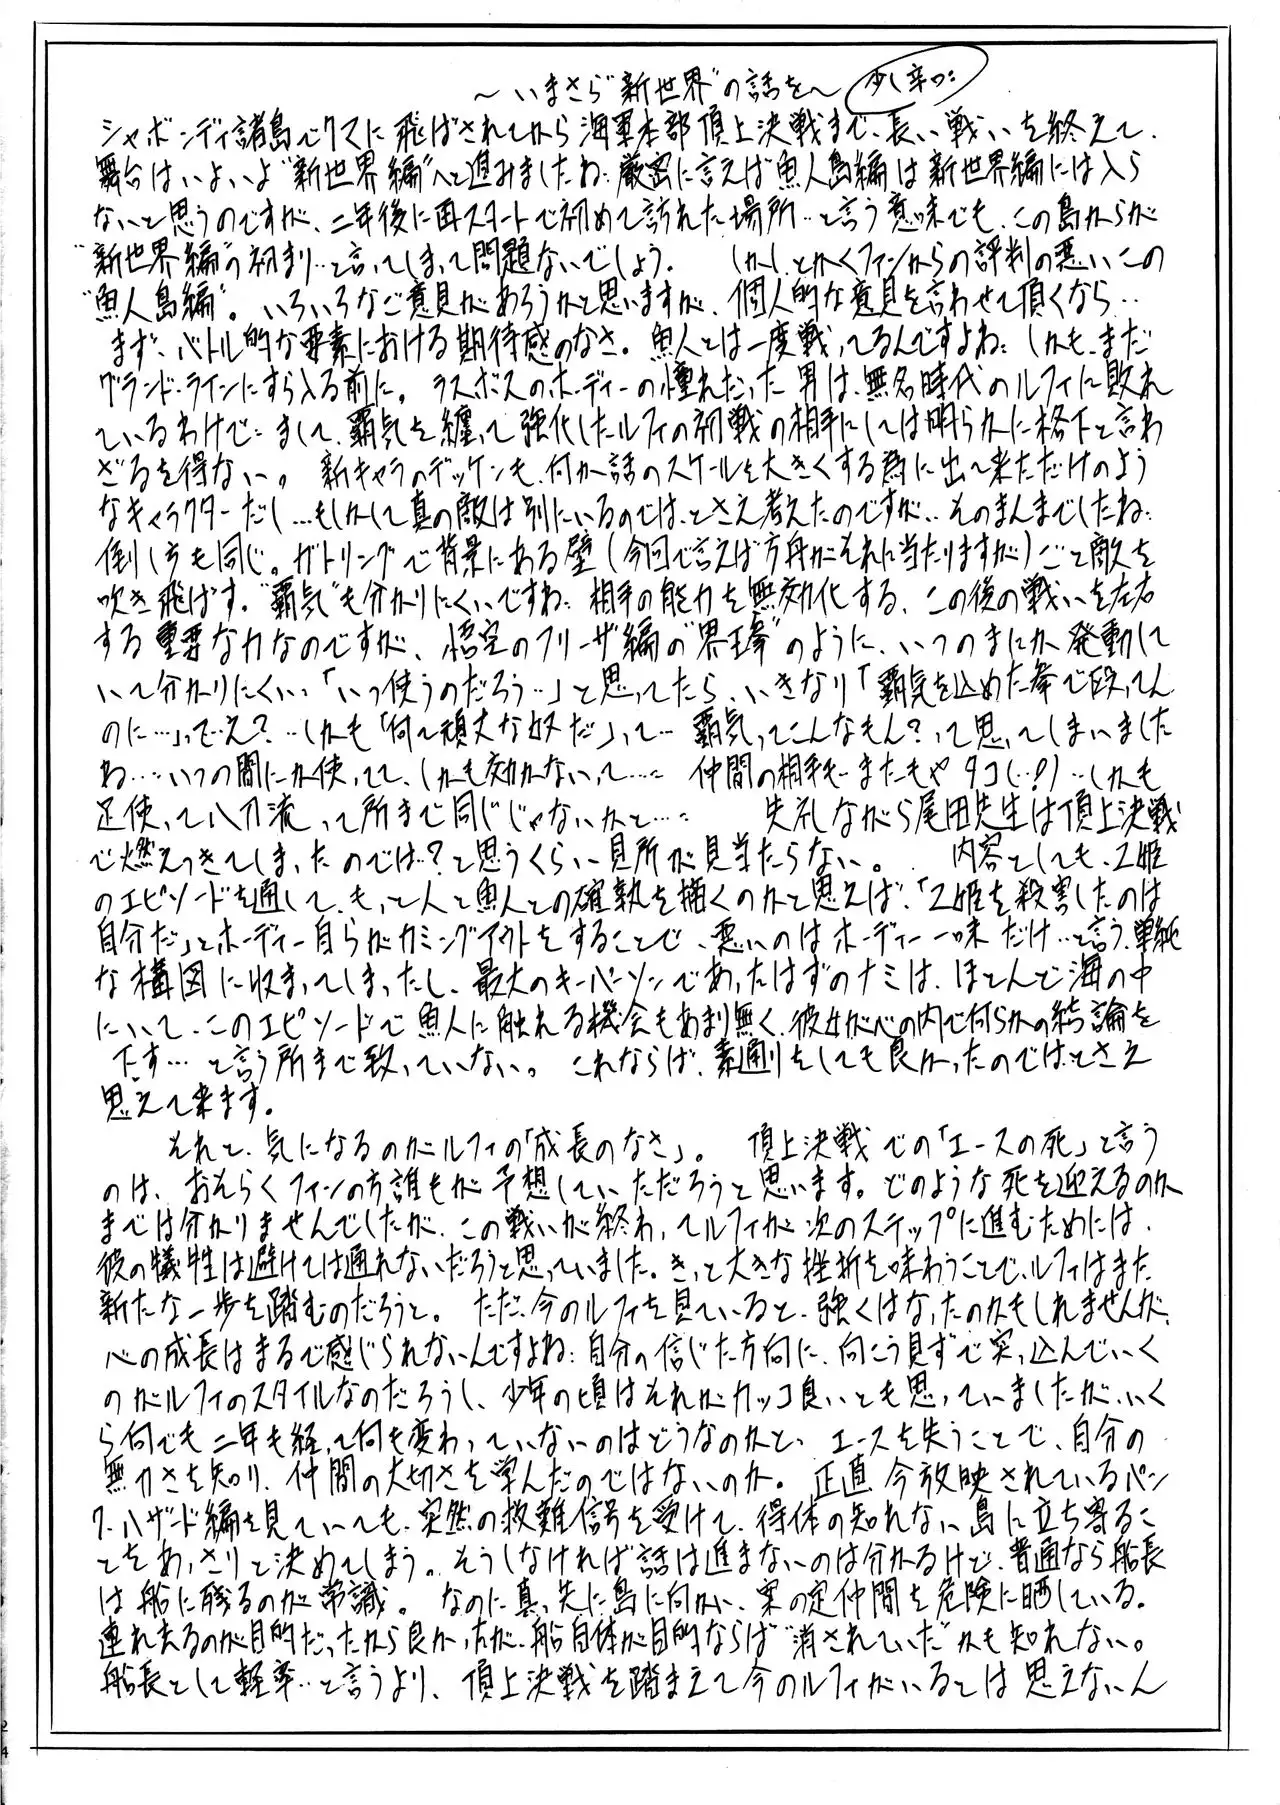 〜いまさら"新世界"の話を〜 少し辛口:
シャボンディ諸島でクマに飛ばされてから海軍本部頂上決戦まで、長い戦いを終えて、
舞台はいよいよ"新世界編"へと進みましたね: 厳密に言えば魚人島編は新世界編には入ら
ないと思うのですが、二年後に再スタートで初めて訪れた場所…と言う意味でも、この島からが
"新世界編"の初まり…と言ってしまって問題ないでしょう。 しかし、とかくファンからの評判の悪いこの
"魚人島編"。いろいろなご意見があろうかと思いますが、個人的な意見を言わせて頂くなら…
まず、バトル的な要素における期待感のなさ。魚人とは一度戦ってるんですよね: しかも、まだ
グランド・ラインにすら入る前に。 ラスボスのホーディーの憧れだった男は、無名時代のルフィに敗れ
ているわけで: まして、覇気を纏って強化したルフィの初戦の相手にしては明らかに格下と言わ
ざるを得ない。 新キャラのデッケンも、何か話のスケールを大きくする為に出て来ただけのよう
なキャラクターだし…もしかして真の敵は別にいるのでは、とさえ考えたのですが、そのまんまでしたね:
倒し方も同じ。ガトリングで背景にある壁(今回で言えば方舟がそれに当たりますが)ごと敵を
吹き飛ばす。"覇気"も分かりにくいですね: 相手の能力を無効化する、この後の戦いを左右
する重要な力なのですが、悟空のフリーザ編の"界王拳"のように、いつのまにか発動して
いて分かりにくい、「いつ使うのだろう…」と思ってたら、いきなり「覇気を込めた拳で殴ってん
のに…」って…え?…しかも「何て頑丈な奴だ」って… 覇気ってこんなもん?って思ってしまいました
ね…いつの間にか使ってて、しかも効かないって…: 仲間の相手も、またもやタコ(…!)…しかも
足使って八刀流って所まで同じじゃないかと…: 失礼ながら尾田先生は頂上決戦
で燃えつきてしまったのでは?と思うくらい見所が見当たらない。 内容としても、乙姫
のエピソードを通して、もっと人と魚人との確執を描くのかと思えば、「乙姫を殺害したのは
自分だ」とホーディー自らがカミングアウトをすることで、悪いのはホーディー一味だけ…と言う、単純
な構図に収まってしまったし、最大のキーパーソンであったはずのナミは、ほとんど海の中
にいて、このエピソードで魚人に触れる機会もあまり無く、彼女が心の内で何らかの結論を
下す…と言う所まで致っていない。 これならば、素通りをしても良かったのでは、とさえ
思えて来ます。
それと、気になるのがルフィの「成長のなさ」。 頂上決戦での「エースの死」と言う
のは、おそらくファンの方誰もが予想していただろうと思います。どのような死を迎えるのか
までは分かりませんでしたが、この戦いが終わってルフィが次のステップに進むためには、
彼の犠牲は避けては通れないだろうと思っていました。きっと大きな挫折を味わうことで、ルフィはまた
新たな一歩を踏むのだろうと。 ただ、今のルフィを見ていると、強くはなったのかもしれませんが、
心の成長はまるで感じられないんですよね: 自分の信じた方向に、向こう見ずで突っ込んでいく
のがルフィのスタイルなのだろうし、少年の頃はそれがカッコ良いとも思っていましたが、いく
ら何でも二年も経って何も変わっていないのはどうなのかと、 エースを失うことで、自分の
無力さを知り、仲間の大切さを学んだのではないのか。正直、今放映されているパン
ク・ハザード編を見ていても、突然の救難信号を受けて、得体の知れない島に立ち寄るこ
とをあっさりと決めてしまう。そうしなければ話は進まないのは分かるけど、普通なら船長
は船に残るのが常識。 なのに真っ先に島に向かい、案の定仲間を危険に晒している。
連れ去るのが目的だったから良かったが、船自体が目的ならば"消されていた"かも知れない。
船長として軽率…と言うより、頂上決戦を踏まえて今のルフィがいるとは思えないん
24